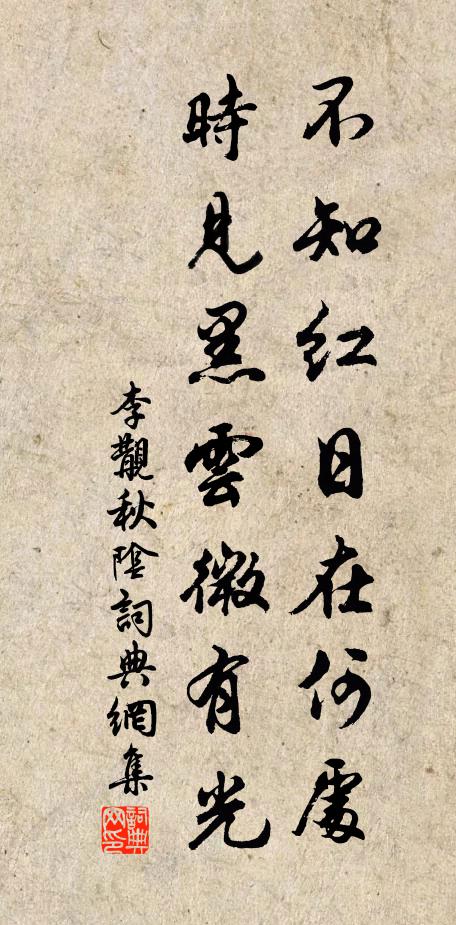 不知紅日在何處
時見黑雲微有光
李覯秋陰詞典網集
詞典網印